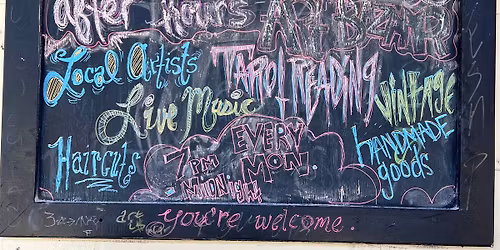 after hours ART BAZAAR
Local Artists
TAROT READING
VINTAGE
Live Music
handmade goods
Haircuts
7PM
MIDNIGHT
EVERY
MON.
You're welcome.